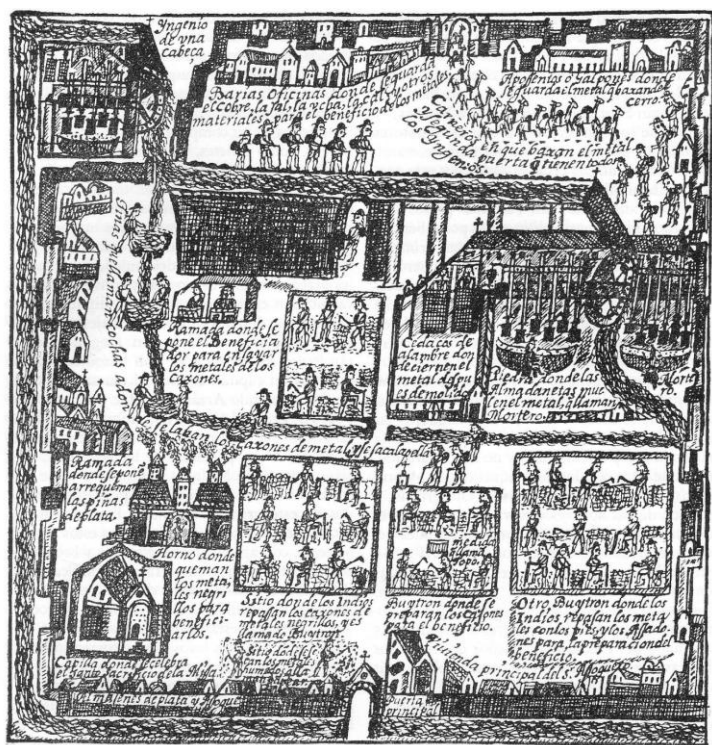 Yngenio
de vna
cabeça
Barias Oficinas donde se guarda
el cobre, la sal, la ycha, la cal, y otros
materiales, para el beneficio de los metales
Aposentos o Galpones donde
se guarda el metal q baxan del
cerro.
Carneros en que baxan el metal
y segunda puerta q tienen todos
los Yngenios.
Tinas que llaman cochas adon
de se laban los caxones de metal y se saca la pella
Ramada donde se
pone el Beneficia
dor para ensayar
los metales de los
caxones.
Cedaços de
alambre don
de ciernen el
metal despu
es de molido
Piedra donde las
Almadanetas mue
len el metal, q llaman
Mortero.
Morte
ro.
Ramada
donde se pone
a rrequemar
las piñas
de plata.
Horno donde
queman
los meta,
les negri
llos para
benefici-
arlos.
Sitio donde los Indios
repasan los caxones de
metales negrillos, q es
llamado Buytron.
medida
llama
Topo.
Buytron donde se
preparan los caxones
para el beneficio.
Otro Buytron donde los
Indios repasan los meta
les con los pies, y los Assado
nes para la preparacion del
beneficio.
Capilla donde se celebra
el Santo sacreficio de la Missa.
Sitio donde se
Almasenes de plata y Asogue
Puerta
principal
Viuienda principal del s.r Asoguero